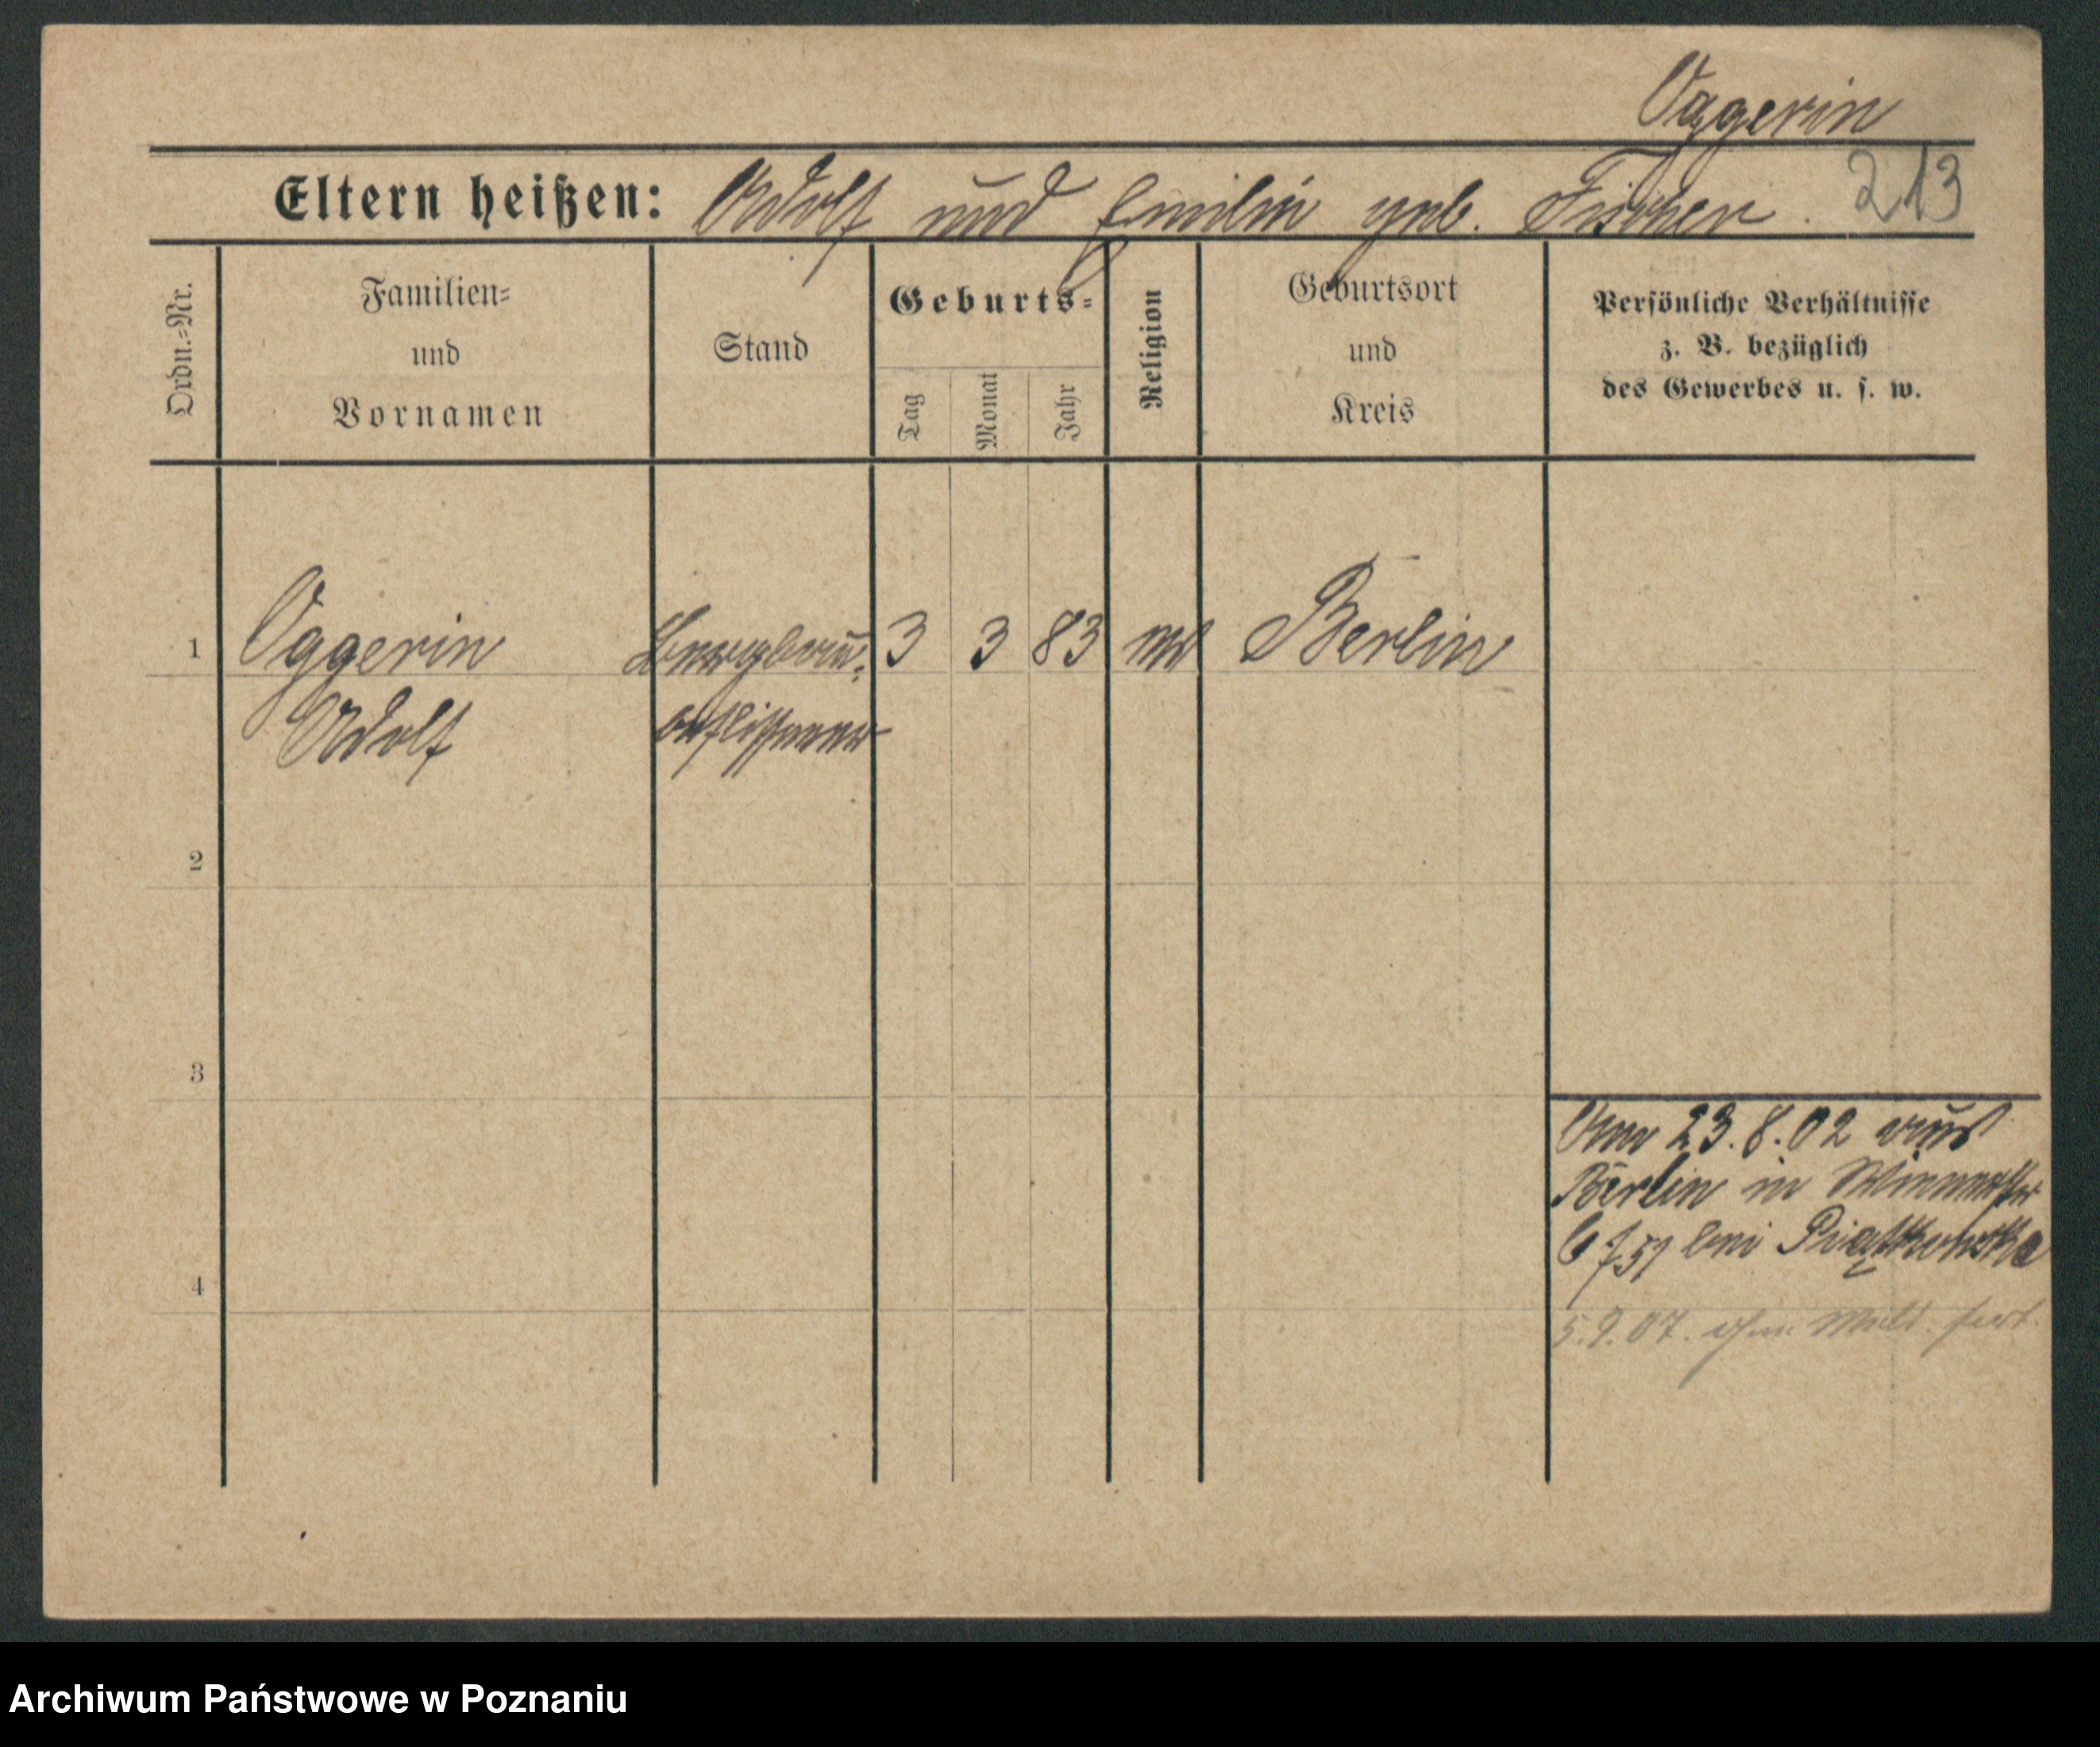 Oggerin
Eltern heißen: Adolf und Emilie geb. Fischer. 213
Ordn.=Nr.
Familien=
und
Vornamen
Stand
Geburts=
Tag
Monat
Jahr
Religion
Geburtsort
und
Kreis
Persönliche Verhältnisse
z. B. bezüglich
des Gewerbes u. s. w.
1 Oggerin Bergbau= 3 3 83 Berlin
Adolf beflissener
2
3
Am 23.8.02 aus
Berlin in
bei Piątkowska
4
5.9.07. ohne Meld. fort.
Archiwum Państwowe w Poznaniu